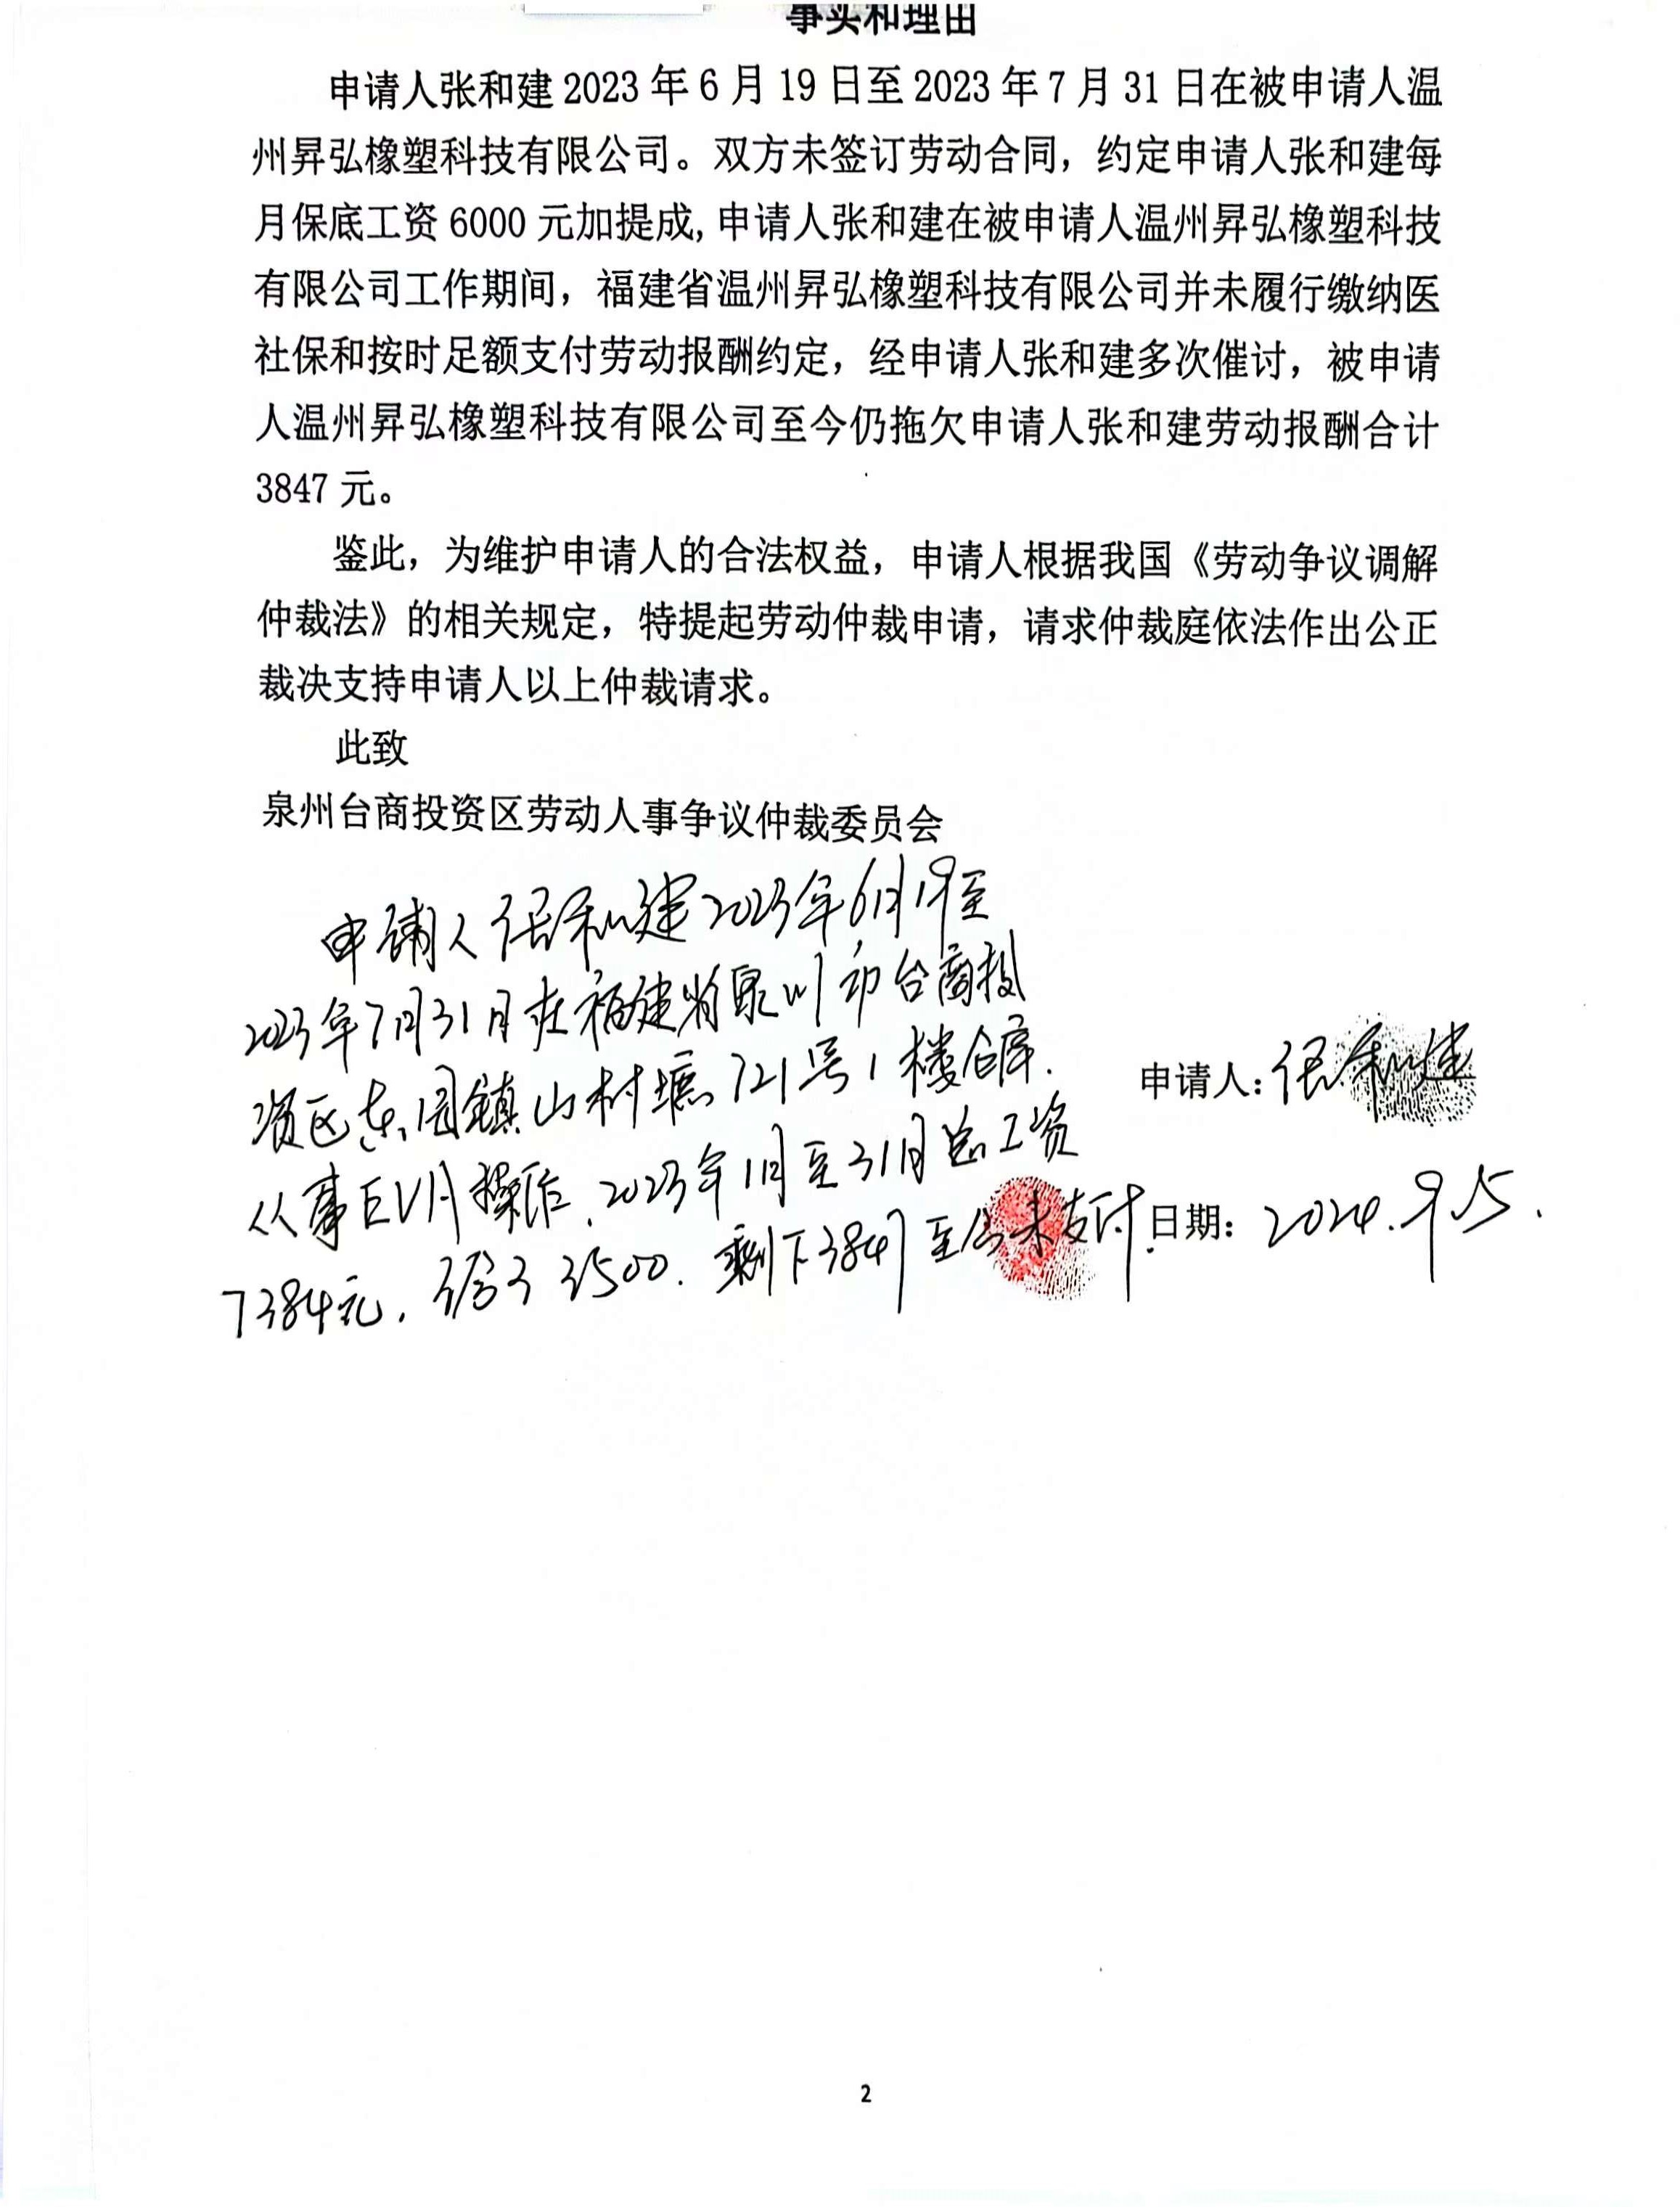 事实和理由
申请人张和建 2023 年 6 月 19 日至 2023 年 7 月 31 日在被申请人温
州昇弘橡塑科技有限公司。双方未签订劳动合同，约定申请人张和建每
月保底工资 6000 元加提成, 申请人张和建在被申请人温州昇弘橡塑科技
有限公司工作期间，福建省温州昇弘橡塑科技有限公司并未履行缴纳医
社保和按时足额支付劳动报酬约定，经申请人张和建多次催讨，被申请
人温州昇弘橡塑科技有限公司至今仍拖欠申请人张和建劳动报酬合计
3847 元。
鉴此，为维护申请人的合法权益，申请人根据我国《劳动争议调解
仲裁法》的相关规定，特提起劳动仲裁申请，请求仲裁庭依法作出公正
裁决支持申请人以上仲裁请求。
此致
泉州台商投资区劳动人事争议仲裁委员会
申请人张和建2023年6月19至
2023年7月31日在福建省泉州市台商投
资区东园镇山村墟721号1楼仓库.
申请人:张和建
从事EVA操作.2023年1月至31月总工资
日期: 2024.9.15.
7384元. 给了3500. 剩下3847至今未支付.
2